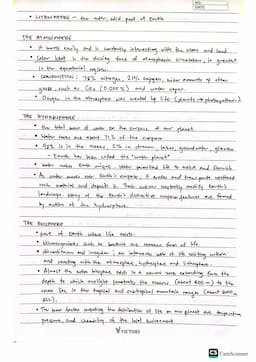 NO.
DATE
• LITHOSPHERE – the outer, solid part of Earth
THE ATMOSPHERE
• It moves easily and is constantly interacting with the ocean and land
• Solar heat is the driving force of atmospheric circulation, is greatest in the equatorial regions.
• COMPOSITION: 78% nitrogen, 21% oxygen, minor amounts of other gases, such as CO2 (0.003%) and water vapor.
• Oxygen in the atmosphere was created by life (plants → photosynthesis)
THE HYDROSPHERE
• The total mass of water on the surface of our planet.
• Water covers about 71% of the surface
• 98% is in the oceans, 2% in streams, lakes, groundwater, glaciers
– Earth has been called the "water planet"
• water makes Earth unique. Water permitted life to evolve and flourish.
• As water moves over Earth's surface, it erodes and transports weathered rock material and deposits it. These actions constantly modify Earth's landscape. Many of the Earth's distinctive surface features are formed by action of the hydrosphere.
THE BIOSPHERE
• part of Earth where life exists.
• Microorganisms such as bacteria are common forms of life.
• life existing within and overlap with the atmosphere, hydrosphere and lithosphere.
• Almost the entire biosphere exists in a narrow zone extending from the depth to which sunlight penetrates the oceans (about 200 m) to the snow line in the tropical and subtropical mountain ranges (about 6000 m ASL).
• The main factors controlling the distribution of life on our planet are temperature, pressure, and chemistry of the local environment
VICTORY
CS CamScanner